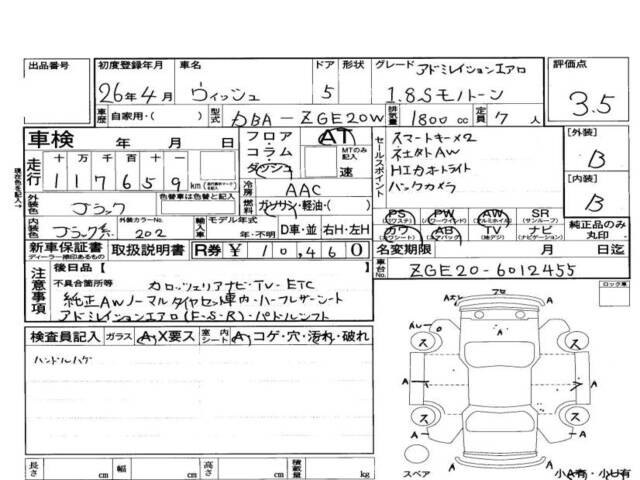 出品番号 初度登録年月 車名 ドア 形状 グレード 評価点
アドミレイションエアロ
26年4月 ヴィッシュ 5 1.8Sモノトーン 3.5
車歴 自家用・( ) 型式 DBA-ZGE20W 排気量 1800cc 定員 7人
車検 年 月 日 フロア・コラム・ダッシュ AT MTのみ記入 速
セールスポイント
スマートキー×2
社外AW
HIDオートライト
バックカメラ
[外装] B
[内装] B
現在を記入→
走行 十 万 千 百 十 一
117659 km
冷房 AAC
燃料 ガソリン・軽油・( )
外装色 ブラック 色替車は色替と記入 元色
内装色 ブラック系 外装カラーNo. 202 輸入車 モデル年式 年・不明 D車・並 右H・左H
PS (パワステ) PW (パワーウインド) AW (アルミホイル) SR (サンルーフ)
カワ (カワシート) AB (エアバック) TV (地デジ) ナビ (ナビゲーション) 純正品のみ丸印
新車保証書 ディーラー捺印あるもの 取扱説明書 R券 ¥10,460
名変期限 月 日迄
車台No. ZGE20-6012455
注意事項
後日品 [ ]
不具合箇所等 カロッツェリアナビ・TV・ETC
純正AWノーマルタイヤセット車内・ハーフレザーシート
アドミレイションエアロ(F・S・R)・パドルシフト
ロック車
検査員記入 ガラス A X要ス 室内シート A コゲ・穴・汚れ・破れ
ハンドルハゲ
ス ス ス ス
A A A A A
スペア
長さ cm 幅 cm 高さ cm 積載量 kg
小A有・小U有